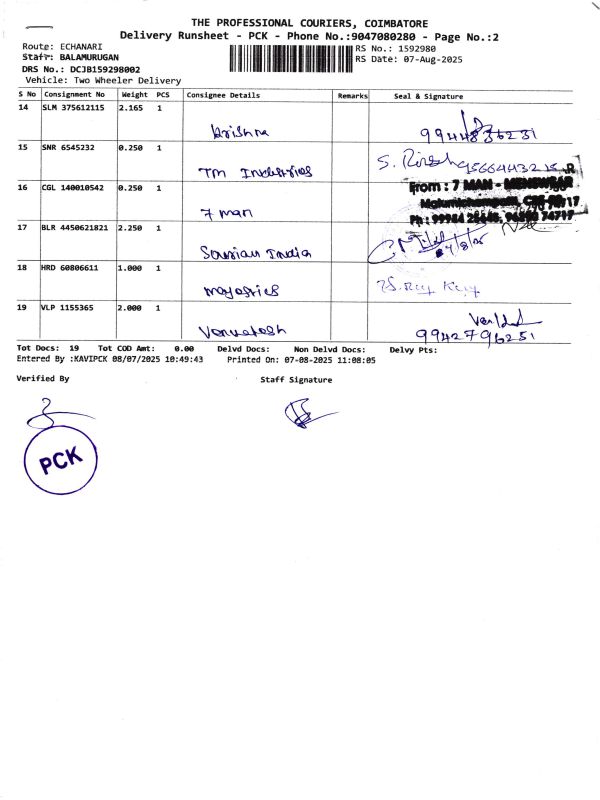 THE PROFESSIONAL COURIERS, COIMBATORE
Delivery Runsheet - PCK - Phone No.:9047080280 - Page No.:2
Route: ECHANARI
RS No.: 1592980
Staff: BALAMURUGAN
RS Date: 07-Aug-2025
DRS No.: DCJB159298002
Vehicle: Two Wheeler Delivery
S No Consignment No Weight PCS Consignee Details Remarks Seal & Signature
14 SLM 375612115 2.165 1
Krishna 9944836231
15 SNR 6545232 0.250 1
TM Industries
16 CGL 140010542 0.250 1 From : 7 MAN - MENSWEAR
7 man
17 BLR 4450621821 2.250 1
Sourian India
18 HRD 60806611 1.000 1
19 VLP 1155365 2.000 1
Venkatesh 9942796251
Tot Docs: 19 Tot COD Amt: 0.00 Delvd Docs: Non Delvd Docs: Delvy Pts:
Entered By :KAVIPCK 08/07/2025 10:49:43 Printed On: 07-08-2025 11:08:05
Verified By Staff Signature
PCK